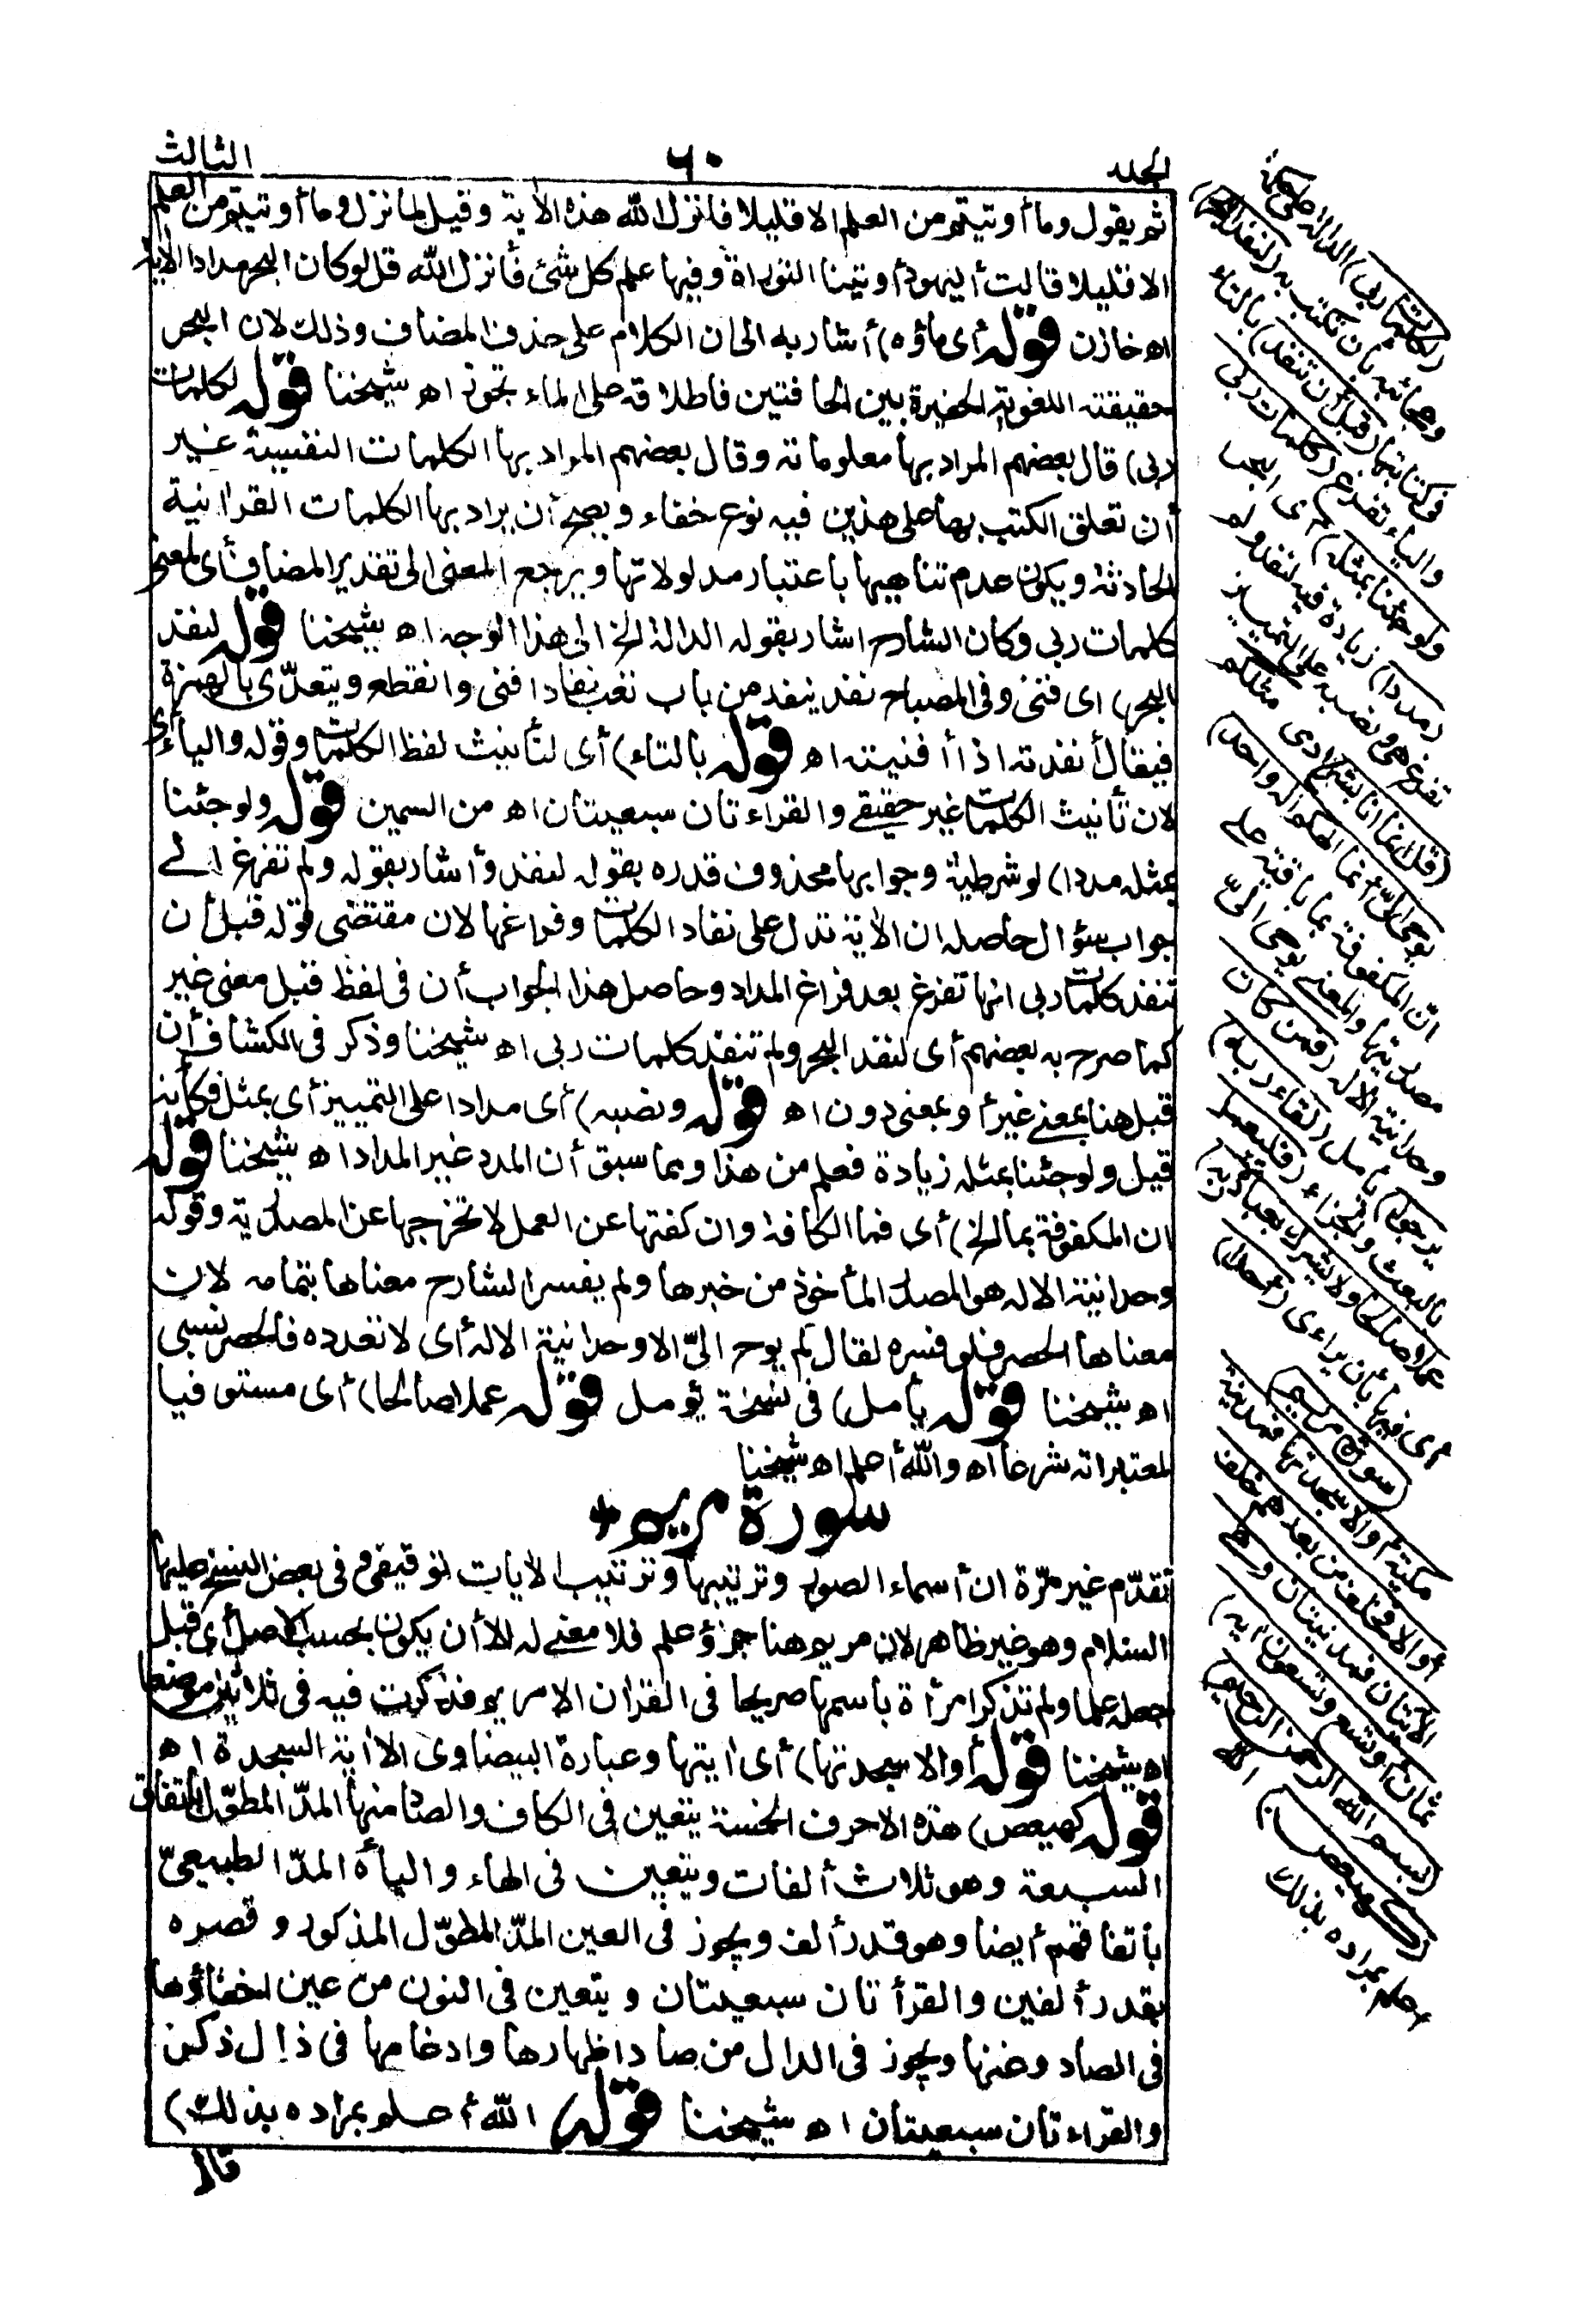 الجلد
٦٠
الثالث
ثم يقول وما أوتيتم من العلم الا قليلا فانزل الله هذه الآية وقيل لما نزل وما أوتيتم من العلم
الا قليلا قالت أليهود أوتينا التوراة وفيها علم كل شئ فأنزل الله قل لو كان البحر مدادا الآية
اه خازن قوله أى ماؤه) أشار به الى ان الكلام على حذف المضاف وذلك لان البحر
حقيقته اللغوية الحفيرة بين الحافتين فاطلاقه على الماء تجوز اه شيخنا قوله لكلمات
ربى) قال بعضهم المراد بها معلوماته وقال بعضهم المراد بها الكلمات النفسية غير
أن تعلق الكتب بها على هذين فيه نوع خفاء ويصح أن يراد بها الكلمات القرانية
الحادثة ويكون عدم تناهيها باعتبار مدلولاتها ويرجع المعنى الى تقدير المضاف أى لمعنى
كلمات ربى وكان الشارح اشار بقوله الدالة الخ الى هذا الوجه اه شيخنا قوله لنفد
البحر) اى فنى وفى المصباح نفد ينفد من باب تعب نفادا فنى وانقطع ويتعدّى بالهمزة
فيقال أنفدته اذا أفنيته اه قوله بالتاء) أى لتأنيث لفظ الكلمات وقوله والياء أى
لان تأنيث الكلمات غير حقيقى والقراءتان سبعيتان اه من السمين قوله ولو جئنا
بمثله مددا) لو شرطية وجوابها محذوف قدره بقوله لنفد وأشار بقوله ولم تفرغ الى
جواب سؤال حاصله ان الآية تدل على نفاد الكلمات وفراغها لان مقتضى قوله قبل أن
تنفد كلمات ربى انها تفرغ بعد فراغ المداد وحاصل هذا الجواب أن فى لفظ قبل معنى غير
كما صرح به بعضهم أى لنفد البحر ولم تنفد كلمات ربى اه شيخنا وذكر فى الكشاف أن
قبل هنا بمعنى غير أو بمعنى دون اه قوله ونصبه) أى مدادا على التمييز أى بمثل فكأنه
قيل ولو جئنا بمثله زيادة فعلم من هذا ومما سبق أن المدد غير المداد اه شيخنا قوله
ان المكفوفة بما الخ) أى فما الكافة وان كفتها عن العمل لا تخرجها عن المصدرية وقوله
وحدانية الاله هو المصدر المأخوذ من خبرها ولم يفسر الشارح معناها بتمامه لان
معناها الحصر فلو فسره لقال لم يوح الىّ الا وحدانية الاله أى لا تعدده فالحصر نسبى
اه شيخنا قوله يأمل) فى نسخة يؤمل قوله عملا صالحا) أى مستوفيا
لمعتبراته شرعا اه والله أعلم اه شيخنا
سورة مريم
تقدّم غير مرّة ان أسماء السور وترتيبها وترتيب الآيات توقيفى وفى بعض النسخ عليها
السلام وهو غير ظاهر لان مريم هنا جزؤ علم فلا معنى له الا أن يكون بحسب الاصل أى قبل
جعله علما ولم تذكر امرأة باسمها صريحا فى القرآن الا مريم فذكرت فيه فى ثلاثين موضعا
اه شيخنا قوله أو الا سجدتها) أى ايتها وعبارة البيضاوى الا اية السجدة اه
قوله كهيعص) هذه الاحرف الخمسة يتعين فى الكاف والصاد منها المدّ المطوّل باتفاق
السبعة وهو ثلاث ألفات ويتعين فى الهاء والياء المدّ الطبيعىّ
باتفاقهم أيضا وهو قدر ألف ويجوز فى العين المدّ المطوّل المذكور وقصره
بقدر ألفين والقرأتان سبعيتان ويتعين فى النون من عين اخفاؤها
فى الصاد وغنها ويجوز فى الدال من صاد اظهارها وادغامها فى ذال ذكر
والقراءتان سبعيتان اه شيخنا قوله) الله أعلم بمراده بذلك)
قال
(لكلمات ربى) الدالة على حكمه
وعجائبه بأن تكتب به (لنفد البحر)
فى كتابتها (قبل أن تنفد) بالتاء
والياء تفرغ (كلمات ربى
ولو جئنا بمثله) أى البحر
(مددا) زيادة فيه لنفد ولم
تفرغ هى ونصبه على التمييز
(قل انما انا بشر) ادمى مثلكم
يوحى الىّ أنما الهكم اله واحد)
انّ المكفوفة بما باقية على
مصدريتها والمعنى يوحى الىّ
وحدانية الاله (فمن كان
يرجو) يأمل (لقاء ربه)
بالبعث والجزاء (فليعمل
عملا صالحا ولا يشرك بعبادة ربه)
أى فيها بأن يرائى (أحدا)
(سورة مريم)
مكية أو الا سجدتها فمدنية
أو الا فخلف من بعدهم خلف
الآيتان فمدنيتان وهى
ثمان أو تسع وتسعون آية)
(بسم الله الرحمن الرحيم)
(كهيعص) الله
أعلم بمراده بذلك